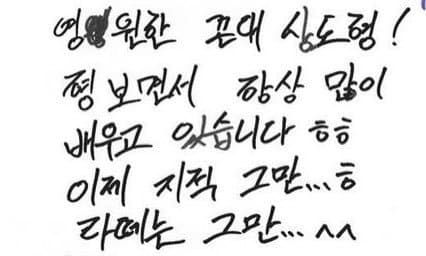 영원한 꼰대 상도형!
형 보면서 항상 많이
배우고 있습니다 ㅎㅎ
이제 지적 그만...ㅎ
라떼는 그만... ^^